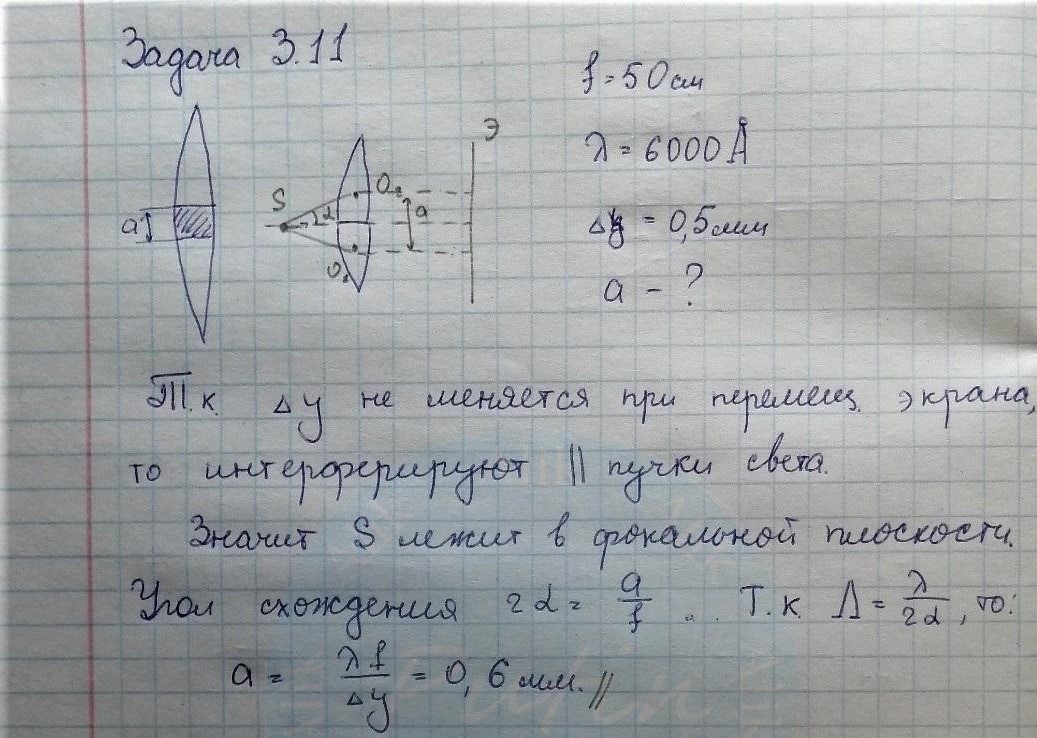 Задача 3.11
f = 50 см
λ = 6000 Å
Δy = 0,5 мм
a - ?
a
S
2α
O₂
O₁
a
Э
Т.к. Δy не меняется при перемещ. экрана,
то интерферируют || пучки света.
Значит S лежит в фокальной плоскости.
Угол схождения 2α = a/f . Т.к. Λ = λ/2α, то:
a = λf/Δy = 0,6 мм. //